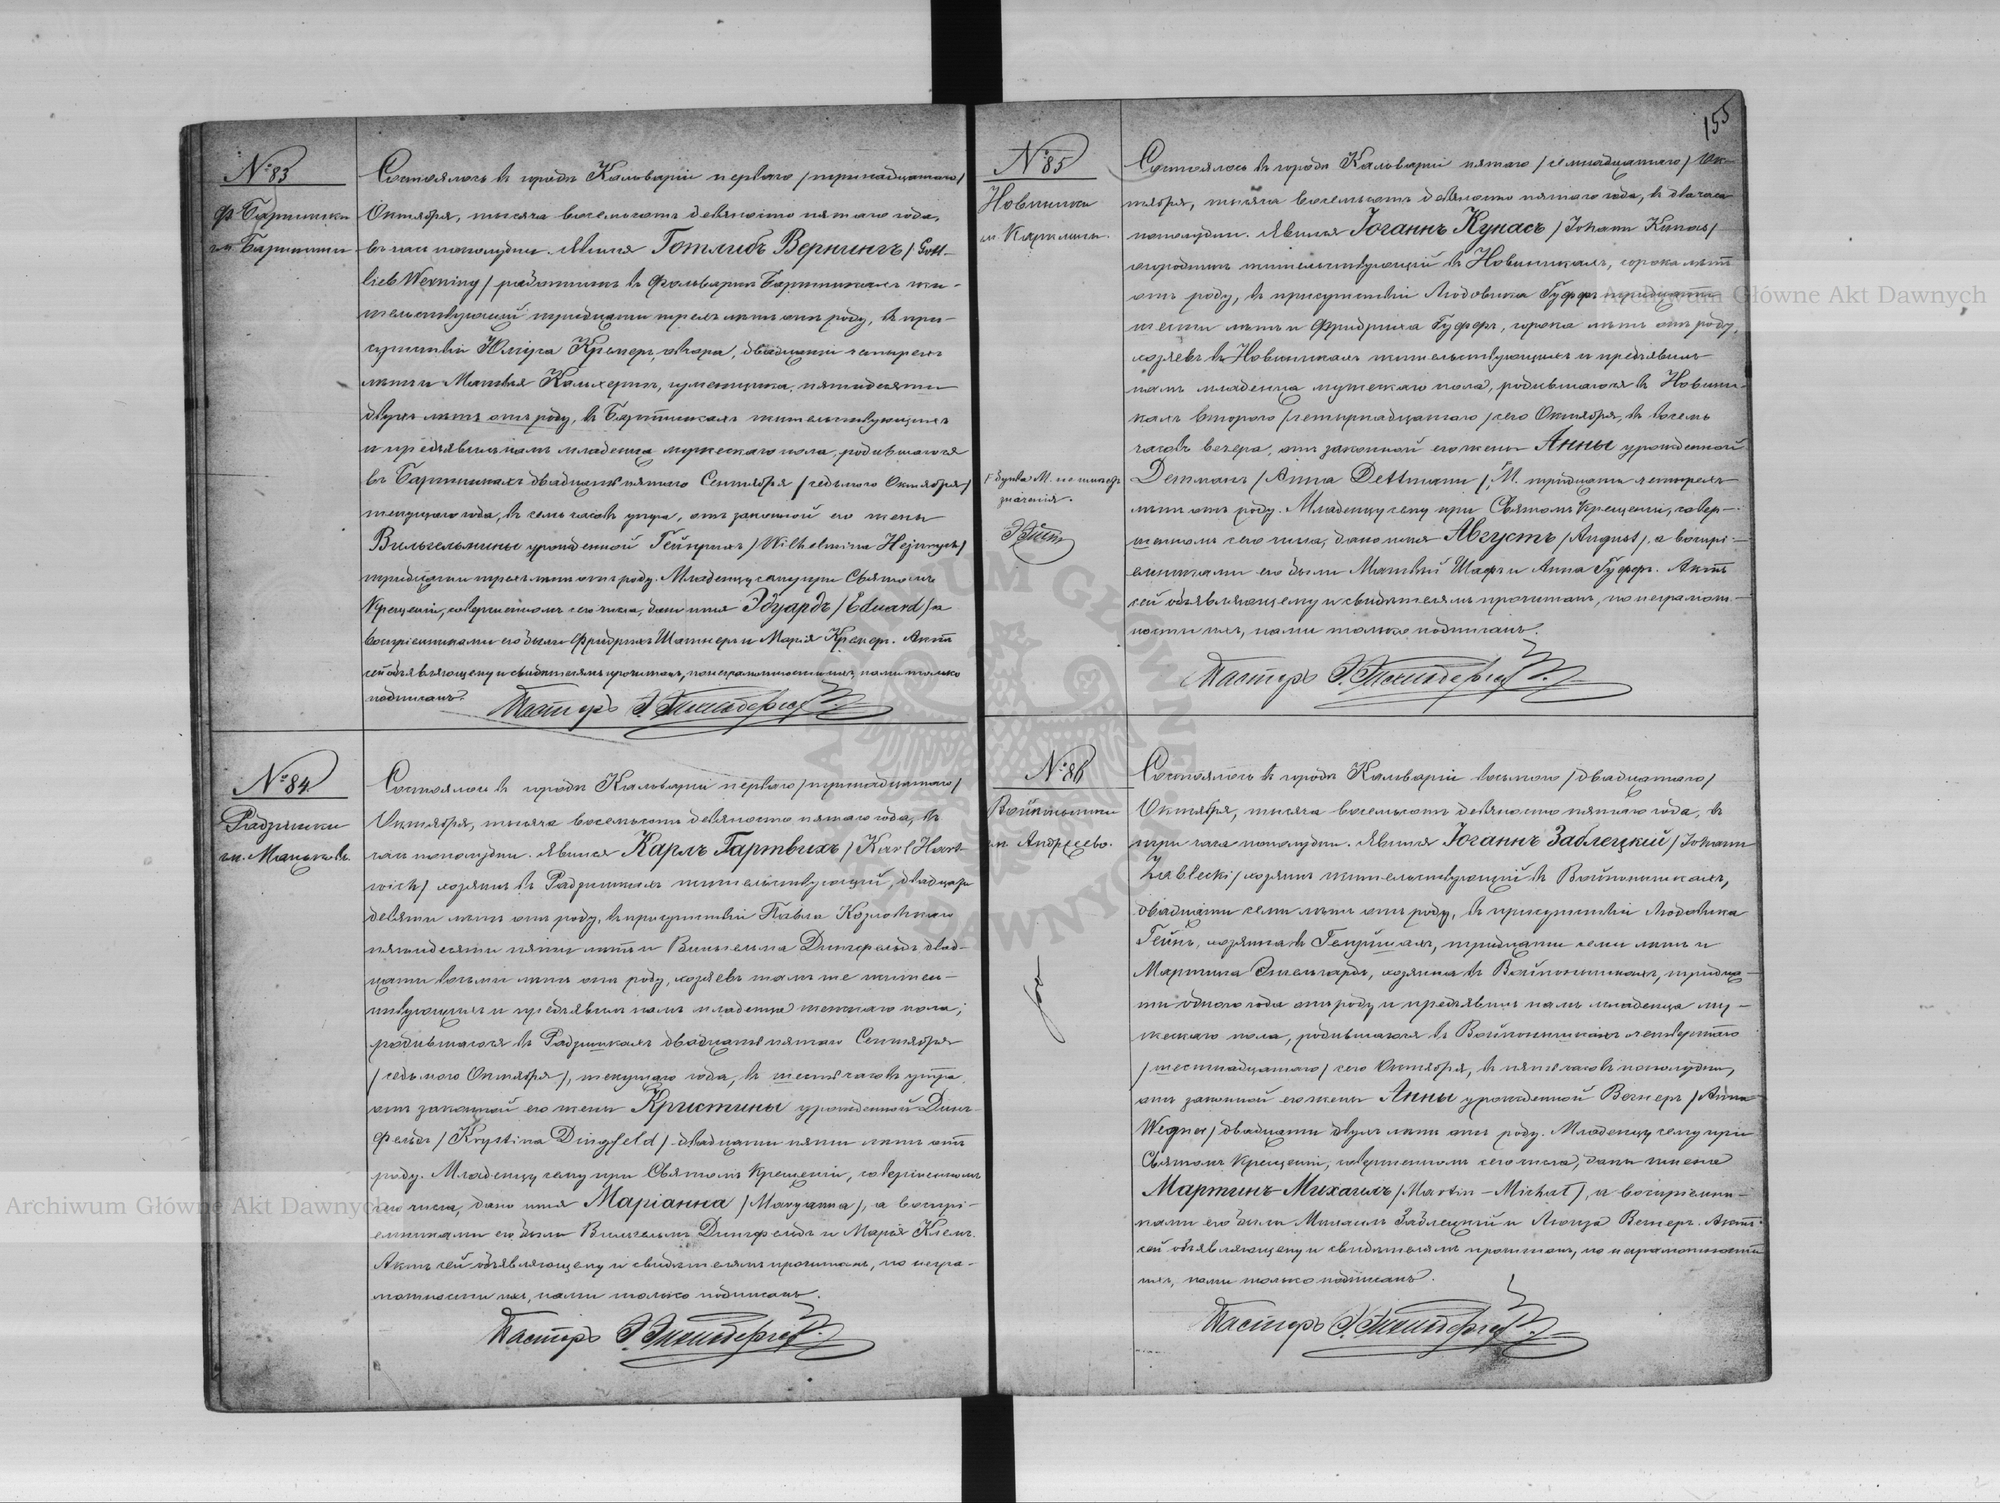 № 83
ф. Бартники
гм. Бартники
Состоялось въ городѣ Кальваріи перваго /тринадцатаго/
Октября, тысяча восемьсотъ девяносто пятаго года,
въ часъ пополудни. Явился Готлибъ Вернингъ / Gott-
lieb Werning / работникъ въ Фольваркѣ Бартникахъ жи-
тельствующій тридцати трехъ лѣтъ отъ роду, въ при-
сутствіи Юліуса Кремеръ, двадцати четырехъ
лѣтъ и Матвѣя пятидесяти
двухъ лѣтъ отъ роду, въ Бартникахъ жительствующихъ
и предъявилъ намъ младенца мужескаго пола, родившагося
въ Бартникахъ двадцать пятаго Сентября /седьмого Октября/
текущаго года, въ семь часовъ утра, отъ законной его жены
Вильгельмины урожденной Гейнрихъ / Wilhelmina Hejnrych /
тридцати трехъ лѣтъ отъ роду. Младенцу сему при Святомъ
Крещеніи, совершенномъ сего числа, дано имя Эдуардъ / Eduard / а
воспріемниками его были Фридрихъ и Марія Кремеръ. Актъ
сей объявляющему и свидѣтелямъ прочитанъ, по неграмотности ихъ, нами только
подписанъ. Пасторъ
№ 84
Радзишки
гм.
Состоялось въ городѣ Кальваріи перваго /тринадцатаго/
Октября, тысяча восемьсотъ девяносто пятаго года, въ
часъ пополудни. Явился Карлъ Гартвихъ / Karl Hart-
wich / хозяинъ въ Радзишкахъ жительствующій, двадцати
девяти лѣтъ отъ роду, въ присутствіи Павла Козловскаго
пятидесяти пяти лѣтъ и Вильгельма Дингфельдъ двад-
цати восьми лѣтъ отъ роду, хозяевъ тамъ же житель-
ствующихъ и предъявилъ намъ младенца женскаго пола,
родившагося въ Радзишкахъ двадцать пятаго Сентября
/седьмого Октября/, текущаго года, въ шесть часовъ утра
отъ законной его жены Кристины урожденной Динг-
фельдъ / Krystina Dingfeld / двадцати пяти лѣтъ отъ
роду. Младенцу сему при Святомъ Крещеніи, совершенномъ
сего числа, дано имя Маріанна / Maryanna /, а воспрі-
емниками его были Вильгельмъ Дингфельдъ и Марія Клемъ.
Актъ сей объявляющему и свидѣтелямъ прочитанъ, по негра-
мотности ихъ, нами только подписанъ.
Пасторъ
155
№ 85
Новиники
гм.
Буква М. не имѣетъ
значенія.
Состоялось въ городѣ Кальваріи пятаго /семнадцатаго/ Ок-
тября, тысяча восемьсотъ девяносто пятаго года, въ два часа
пополудни. Явился Іоганнъ Кунасъ / Johann Kunas /
огородникъ жительствующій въ Новиникахъ, сорока лѣтъ
отъ роду, въ присутствіи Людовика Гуффъ тридцати
шести лѣтъ и Фридриха Гуффъ, сорока лѣтъ отъ роду,
хозяевъ въ Новиникахъ жительствующихъ и предъявилъ
намъ младенца мужескаго пола, родившагося въ Новини-
кахъ второго /четырнадцатаго/ сего Октября, въ восемь
часовъ вечера, отъ законной его жены Анны урожденной
Детманъ / Anna Dettmann /, М. тридцати четырехъ
лѣтъ отъ роду. Младенцу сему при Святомъ Крещеніи, совер-
шенномъ сего числа, дано имя Августъ / August /, а воспрі-
емниками его были Матвѣй Шафъ и Анна Гуффъ. Актъ
сей объявляющему и свидѣтелямъ прочитанъ, по неграмот-
ности ихъ, нами только подписанъ.
Пасторъ
№ 86
гм. Андреево.
Состоялось въ городѣ Кальваріи восьмого /двадцатаго/
Октября, тысяча восемьсотъ девяносто пятаго года, въ
три часа пополудни. Явился Іоганнъ Заблецкій / Johann
Zablecki / хозяинъ жительствующій въ
двадцати семи лѣтъ отъ роду, въ присутствіи Людовика
Гейнъ, хозяина въ тридцати семи лѣтъ и
Мартина Энгельгардъ, хозяина въ тридца-
ти одного года отъ роду и предъявилъ намъ младенца му-
жескаго пола, родившагося въ четвертаго
/шестнадцатаго/ сего Октября, въ пять часовъ пополудни,
отъ законной его жены Анны урожденной Вегнеръ / Anna
Wegner / двадцати двухъ лѣтъ отъ роду. Младенцу сему при
Святомъ Крещеніи, совершенномъ сего числа, даны имена
Мартинъ-Михаилъ / Martin-Michał /, а воспріемни-
ками его были Михаилъ Заблецкій и Луиза Вегнеръ. Актъ
сей объявляющему и свидѣтелямъ прочитанъ, по неграмотности
ихъ, нами только подписанъ.
Пасторъ
Archiwum Główne Akt Dawnych
Archiwum Główne Akt Dawnych
ARCHIWUM GŁÓWNE AKT DAWNYCH